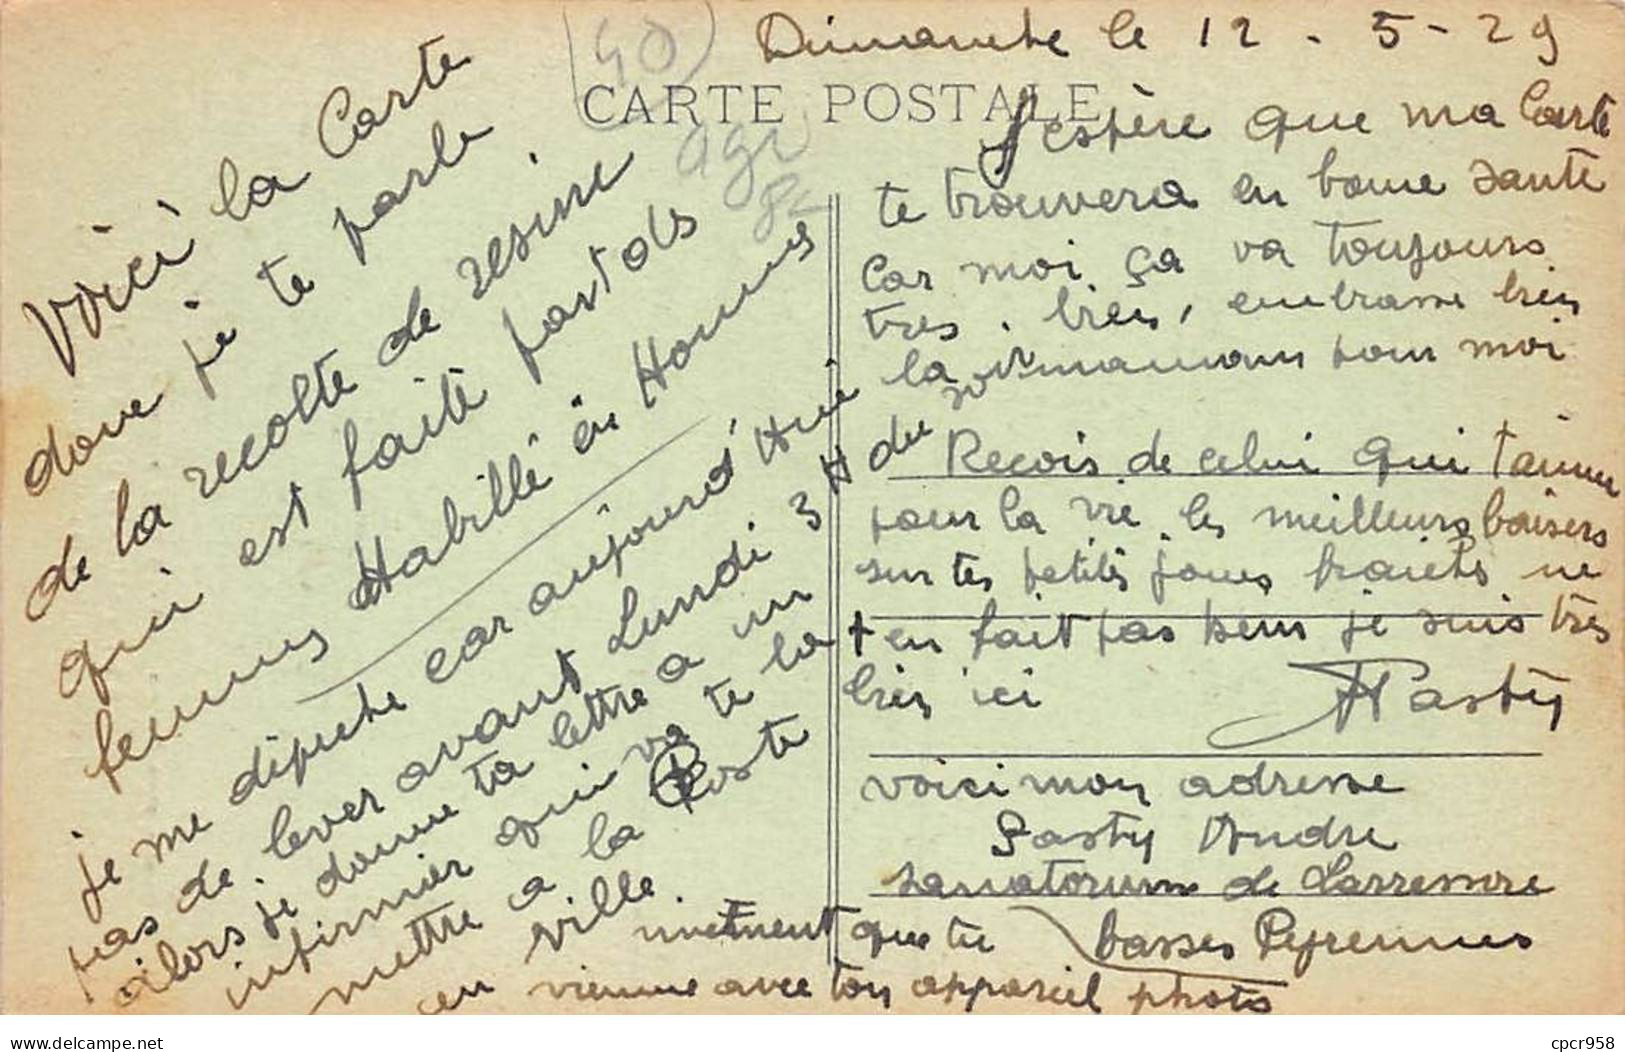 (40)
Dimanche le 12 - 5 - 29
CARTE POSTALE
agr
Voici la Carte
donc je te parle
de la recolte de resine
qui est faite par des
femmes Habillé en Homme
je me dépeche car aujourd'Hui
pas de lever avant Lundi 3 H du soir
alors je donne ta lettre a un
infirmier qui va te la
mettre a la Poste
en ville.
J'espère que ma Carte
te trouvera en bonne santé
Car moi ça va toujours
tres bien, embrasse bien
la maman pour moi
Recois de celui qui t'aime
pour la vie les meilleurs baisers
sur tes petites joues fraiches ne
t'en fait pas bem je suis très
bien ici
APasty
voici mon adresse
Pasty Andre
sanatorium de Larressore
basses Pyrennees
vivement que tu
vienne avec ton appareil photo
delcampe.net
cpcr958